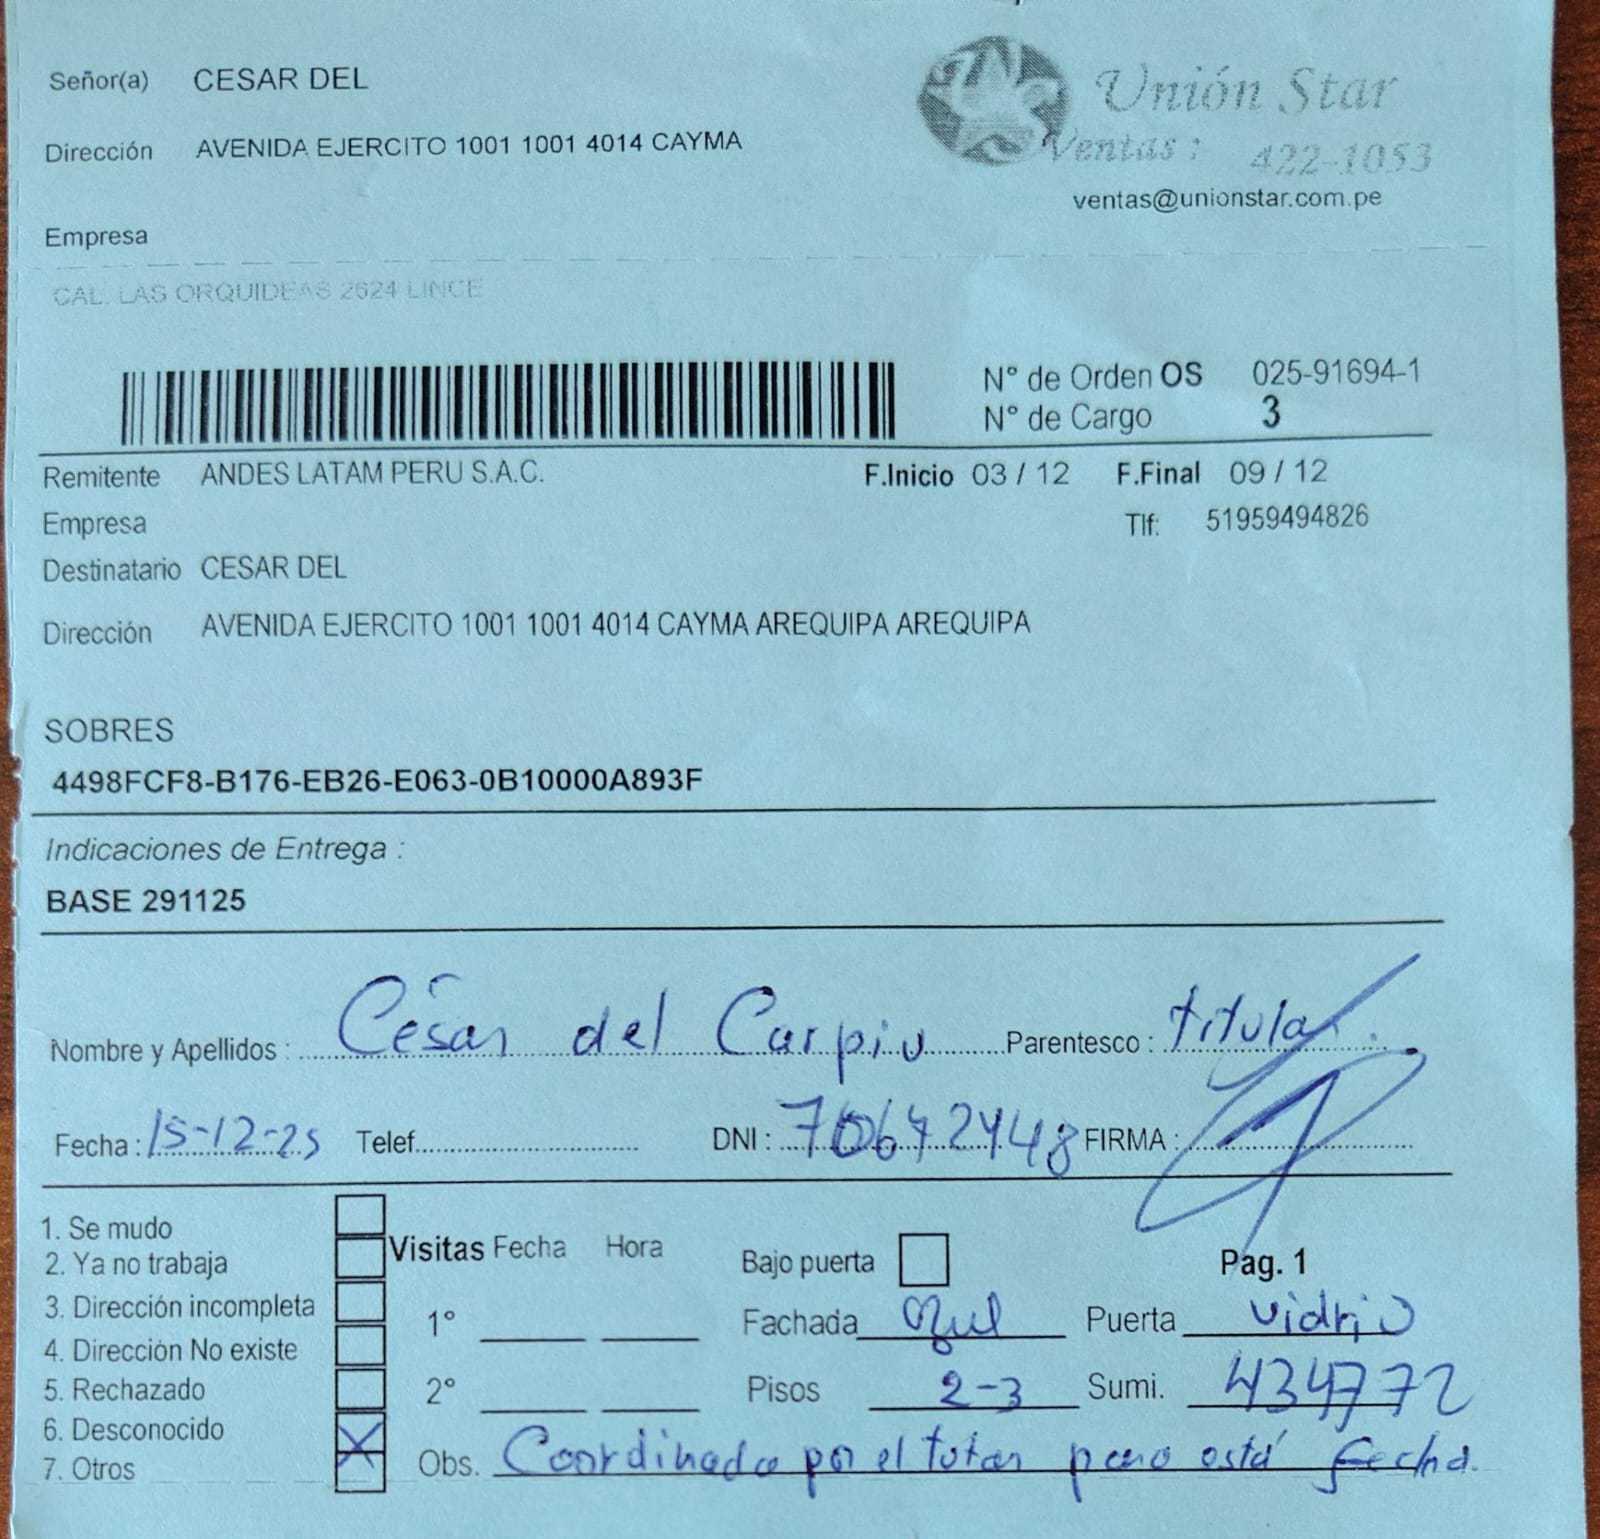 Señor(a) CESAR DEL
Unión Star
Dirección AVENIDA EJERCITO 1001 1001 4014 CAYMA
Ventas : 422-1053
ventas@unionstar.com.pe
Empresa
CAL. LAS ORQUIDEAS 2624 LINCE
N° de Orden OS 025-91694-1
N° de Cargo 3
Remitente ANDES LATAM PERU S.A.C. F.Inicio 03 / 12 F.Final 09 / 12
Empresa Tlf: 51959494826
Destinatario CESAR DEL
Dirección AVENIDA EJERCITO 1001 1001 4014 CAYMA AREQUIPA AREQUIPA
SOBRES
4498FCF8-B176-EB26-E063-0B10000A893F
Indicaciones de Entrega :
BASE 291125
Nombre y Apellidos : César del Carpio Parentesco : titular.
Fecha : 15-12-25 Telef. DNI : 70672448 FIRMA :
1. Se mudo
2. Ya no trabaja
3. Dirección incompleta
4. Dirección No existe
5. Rechazado
6. Desconocido
7. Otros
Visitas Fecha Hora
1°
2°
Bajo puerta Pag. 1
Fachada Azul Puerta vidrio
Pisos 2-3 Sumi. 434772
Obs. Coordinado por el para está fecha.